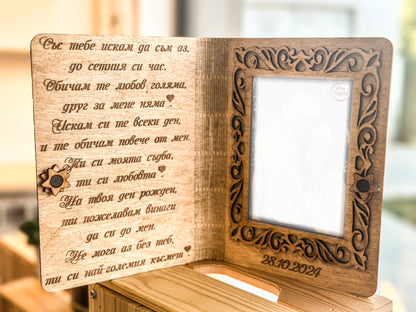 Със тебе искам да съм аз,
до сетния си час.
Обичам те любов голяма,
друг за мене няма.
Искам си те всеки ден,
и те обичам повече от мен.
Ти си моята съдба,
ти си любовта.
На твоя ден рожден,
ти пожелавам винаги
да си до мен.
Не мога аз без теб,
ти си най големия късмет
28.10.2024